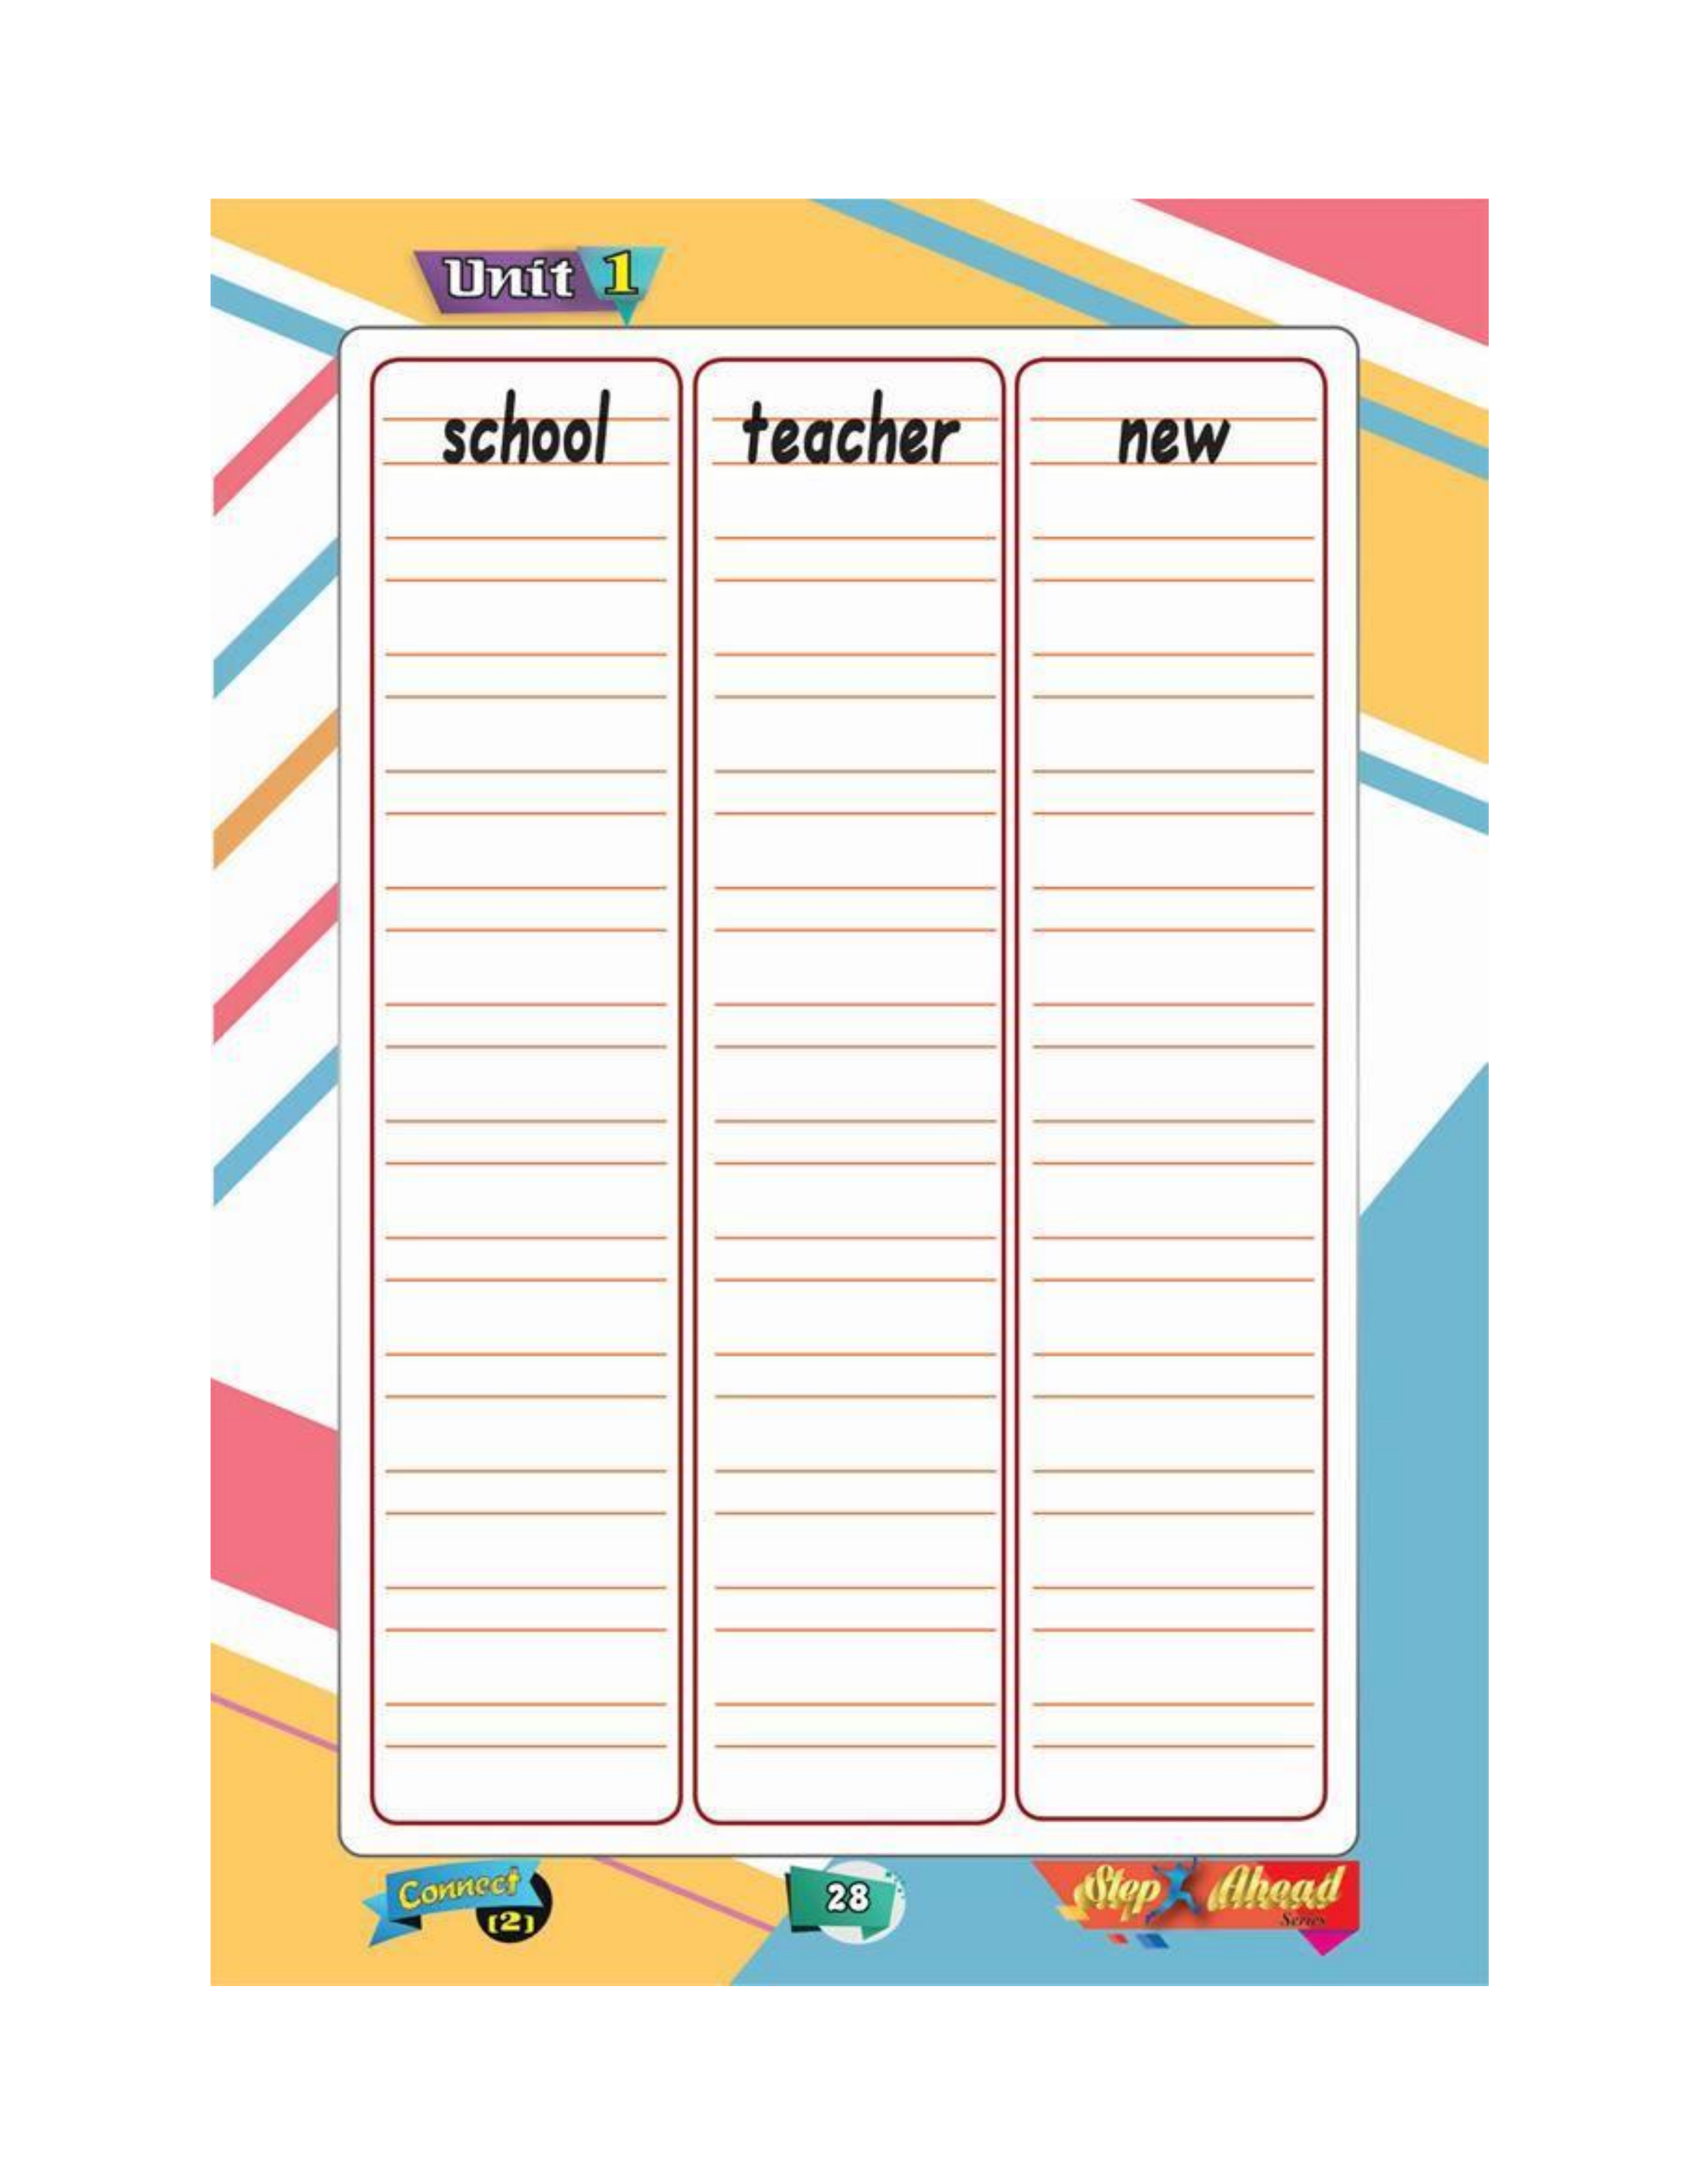 Unit 1
school teacher new
Connect 28 Step Ahead
(2) Series